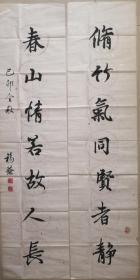 脩竹氣同賢者静
春山情若故人長
己卯金秋